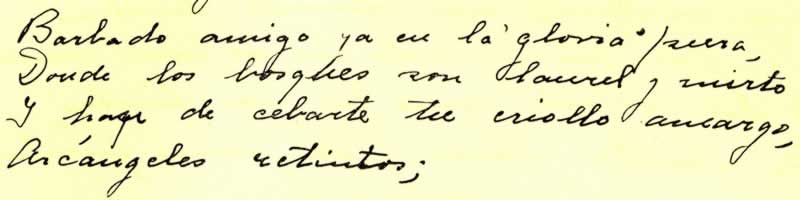 Barbado amigo ya en la gloria pura,
Donde los bosques son laurel y mirto
Y haya de cebarte tu criollo amargo,
Arcángeles retintos;